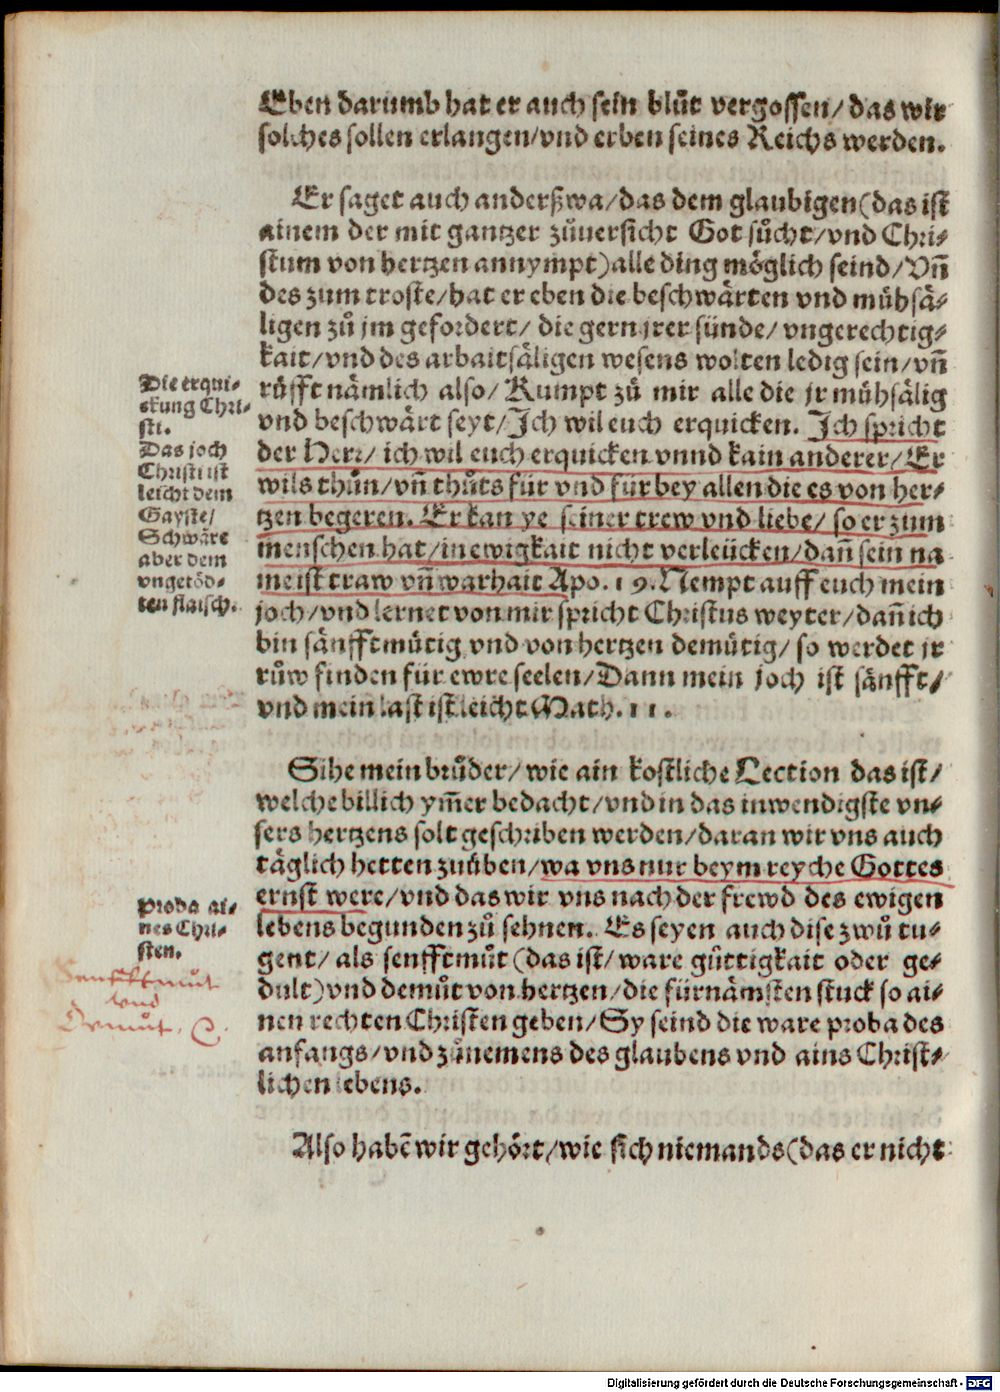 Eben darumb hat er auch sein blůt vergossen/ das wir
solches sollen erlangen/vnd erben seines Reichs werden.
Er saget auch anderßwa/das dem glaubigen(das ist
ainem der mit gantzer zůuersicht Got sůcht/vnd Chri-
stum von hertzen annympt)alle ding möglich seind/Vñ
des zum troste/hat er eben die beschwärten vnd mühsä-
ligen zů jm gefordert/ die gern jrer sünde/ vngerechtig-
kait/vnd des arbaitsäligen wesens wolten ledig sein/vñ
rüfft nämlich also/ Kumpt zů mir alle die jr mühsälig
vnd beschwärt seyt/Ich wil euch erquicken. Ich spricht
der Herr/ ich wil euch erquicken vnnd kain anderer/Er
wils thůn/vñ thůts für vnd für bey allen die es von her-
tzen begeren. Er kan ye seiner trew vnd liebe/ so er zum
menschen hat/in ewigkait nicht verleücken/dañ sein na
me ist traw vñ warhait Apo. 19. Nempt auff euch mein
joch/vnd lernet von mir spricht Christus weyter/dañ ich
bin sänfftmütig vnd von hertzen demütig/ so werdet jr
růw finden für ewre seelen/Dann mein joch ist sänfft/
vnd mein last ist leicht Math. 11.
Die erqui-
ckung Chri-
sti.
Das joch
Christi ist
leicht dem
Gayste/
Schwäre
aber dem
vngetöd-
ten flaisch.
Sihe mein brůder/ wie ain kostliche Lection das ist/
welche billich ym̃er bedacht/vnd in das inwendigste vn-
sers hertzens solt geschriben werden/daran wir vns auch
täglich hetten zuüben/wa vns nur beym reyche Gottes
ernst were/vnd das wir vns nach der frewd des ewigen
lebens begunden zů sehnen. Es seyen auch dise zwů tu-
gent/ als senfftmůt (das ist/ ware güttigkait oder ge-
dult)vnd demůt von hertzen/die fürnämsten stuck so ai-
nen rechten Christen geben/Sy seind die ware proba des
anfangs/vnd zůnemens des glaubens vnd ains Christ-
lichen lebens.
Proba ai-
nes Chri-
sten.
Senfftmut
vnd
Demůt.
Also habẽ wir gehört/wie sich niemands(das er nicht
Digitalisierung gefördert durch die Deutsche Forschungsgemeinschaft - DFG